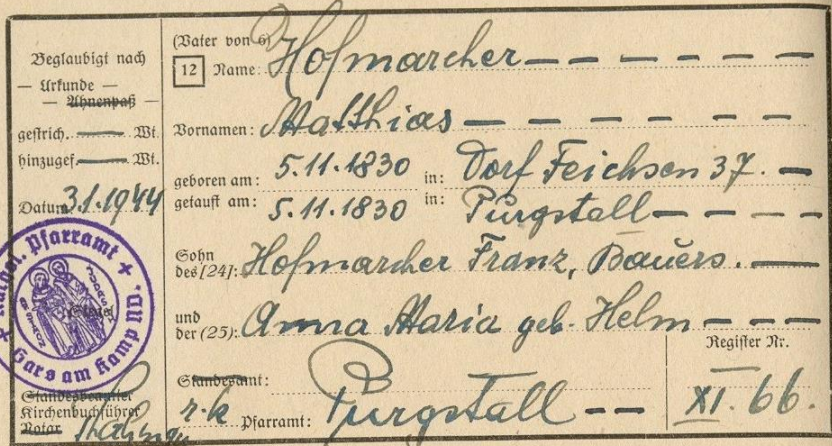 Beglaubigt nach
— Urkunde —
— Ahnenpaß —
gestrich. — Wt.
hinzugef. — Wt.
Datum 3.1.1944
Kathol. Pfarramt + Gars am Kamp ND. +
Standesbeamter
Kirchenbuchführer
Notar
(Vater von 6)
12 Name: Hofmarcher
Vornamen: Matthias
geboren am: 5.11.1830 in: Dorf Feichsen 37.
getauft am: 5.11.1830 in: Purgstall
Sohn des [24]: Hofmarcher Franz, Bauers.
und der (25): Anna Maria geb. Helm
Standesamt:
r.k Pfarramt: Purgstall
Register Nr.
XI. 66.